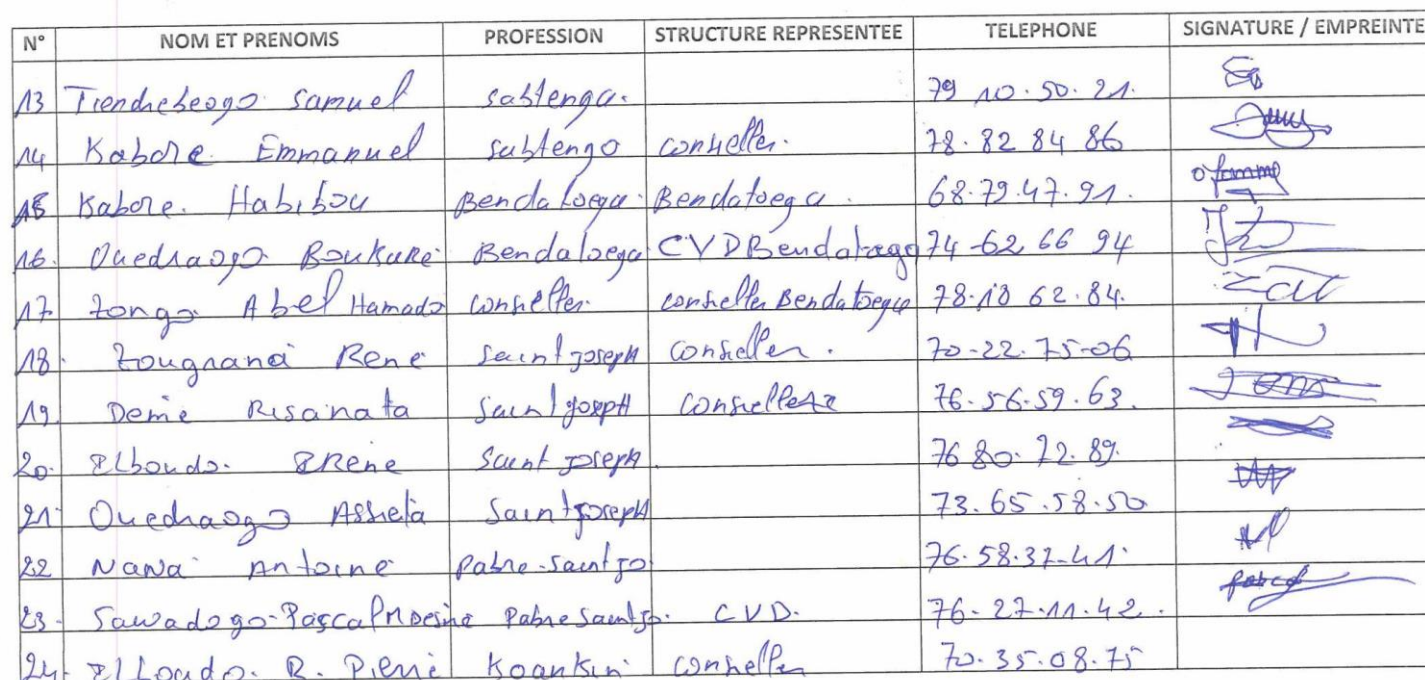 N° NOM ET PRENOMS PROFESSION STRUCTURE REPRESENTEE TELEPHONE SIGNATURE / EMPREINTE
13 Tiendrebeogo Samuel sabtenga. 79 10.50.21.
14 Kabore Emmanuel sabtengo conseiller. 78.82 84 86
15 Kabore. Habibou Bendatoega. Bendatoega. 68.79.47.91.
16. Ouedraogo Boukare Bendatoega CVD Bendatoega 74-62 66 94
17 Zongo Abel Hamado conseiller. conseiller Bendatoega 78.18 62.84.
18. Zougnana René saint joseph conseiller. 70-22.75-06
19. Deme Risanata saint joseph conseillere 76.56.59.63.
20. Elboudo. IRene Saint joseph 76 80.72.89.
21. Ouedraogo Asseta Saint joseph 73.65.58.50
22 NaNa Antoine Pabre-Saint Jo 76.58.37-41.
23. Sawadogo Pascal Pabre Saint Jo. CVD. 76-27.11.42.
24. Elboudo. R. Pierre Koankin conseiller 70.35.08.75